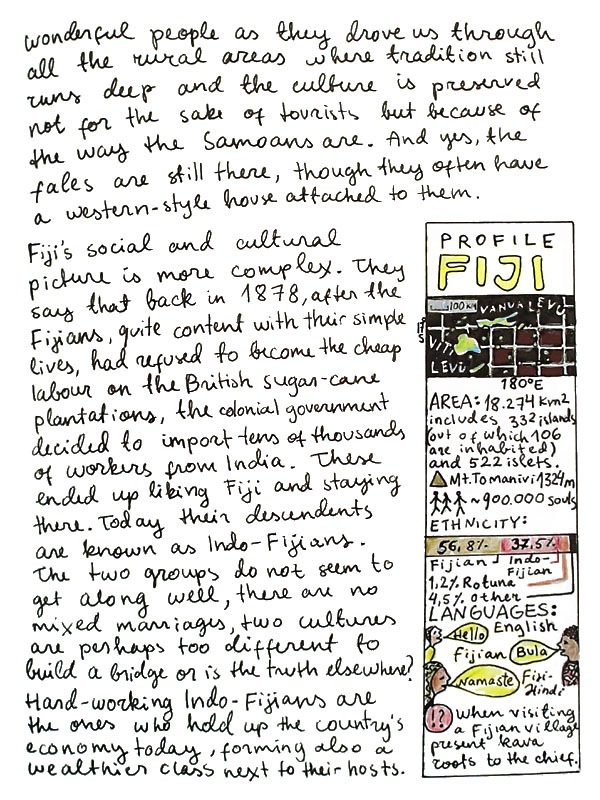 wonderful people as they drove us through
all the rural areas where tradition still
runs deep and the culture is preserved
not for the sake of tourists but because of
the way the Samoans are. And yes, the
fales are still there, though they often have
a western-style house attached to them.
Fiji's social and cultural
picture is more complex. They
say that back in 1878, after the
Fijians, quite content with their simple
lives, had refused to become the cheap
labour on the British sugar-cane
plantations, the colonial government
decided to import tens of thousands
of workers from India. These
ended up liking Fiji and staying
there. Today their descendents
are known as Indo-Fijians.
The two groups do not seem to
get along well, there are no
mixed marriages, two cultures
are perhaps too different to
build a bridge or is the truth elsewhere?
Hard-working Indo-Fijians are
the ones who hold up the country's
economy today, forming also a
wealthier class next to their hosts.
PROFILE
FIJI
100 km VANUA LEVU
17°S
VITI
LEVU
180°E
AREA: 18.274 km2
includes 332 islands
(out of which 106
are inhabited)
and 522 islets.
Mt. Tomanivi 1324m
~900.000 souls
ETHNICITY:
56,8% 37,5%
Fijian Indo-
Fijian
1,2% Rotuna
4,5% other
LANGUAGES:
Hello English
Fijian Bula
Namaste Fiji-
Hindi
!? When visiting
a Fijian village
present kava
roots to the chief.